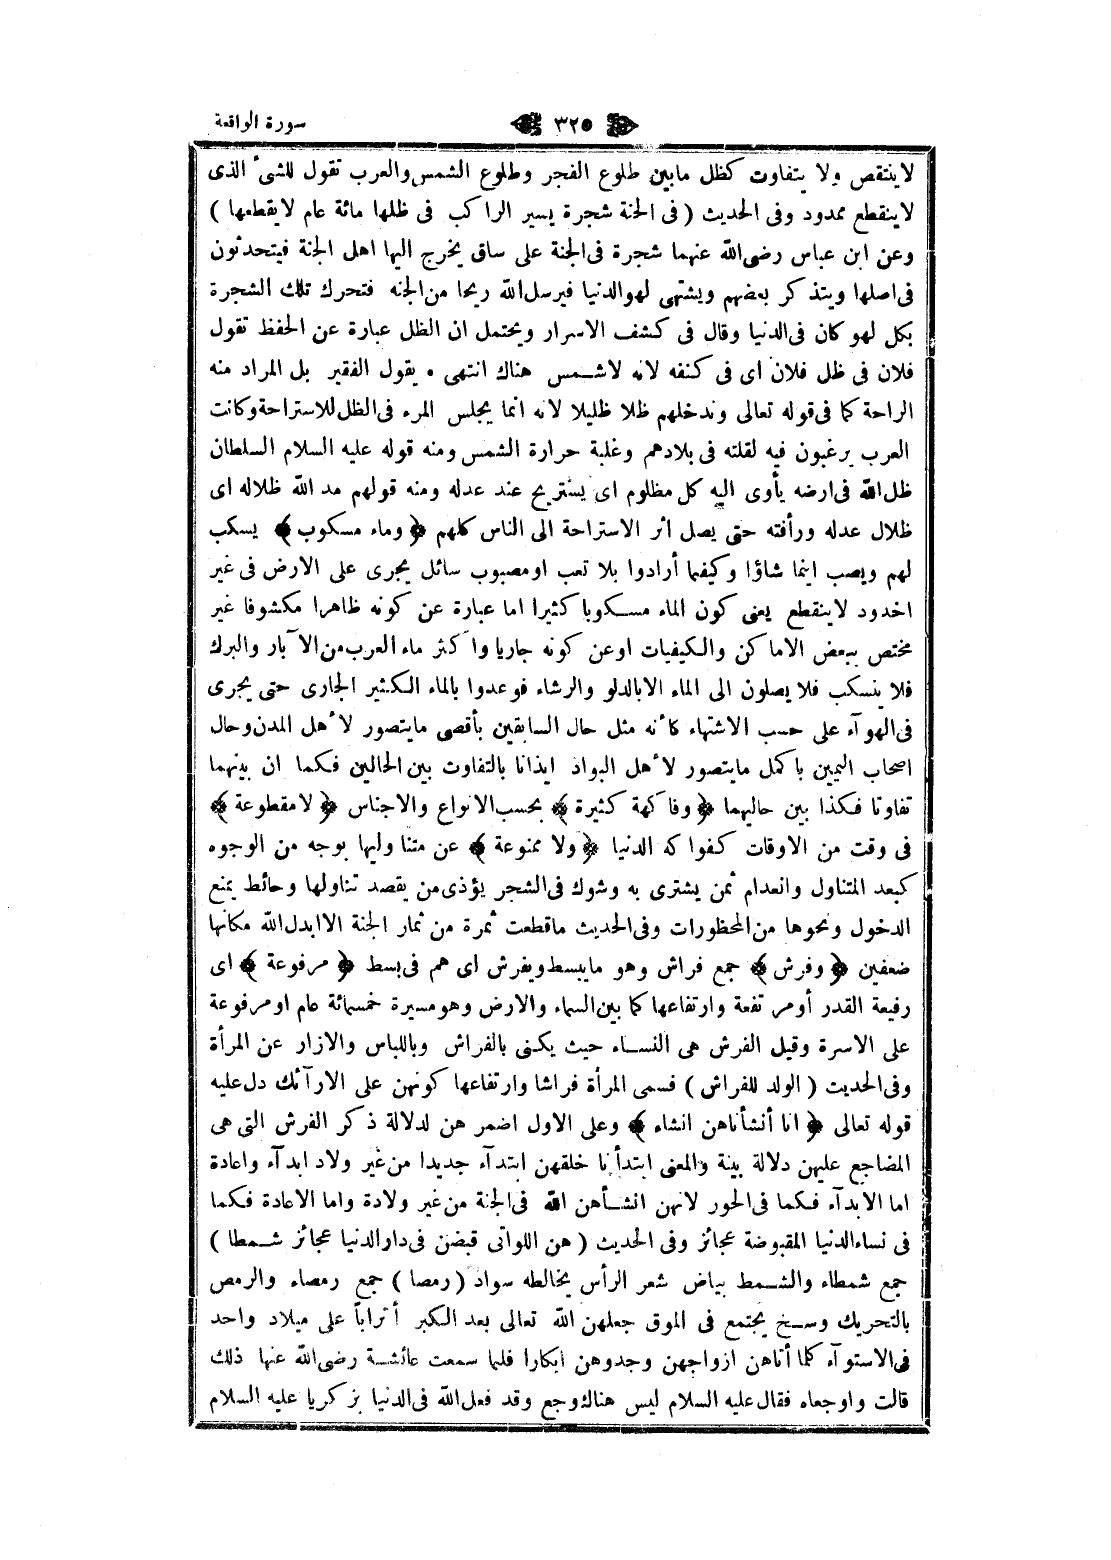 سورة الواقعة ٣٢٥
لاينتقص ولا يتفاوت كظل مابين طلوع الفجر وطلوع الشمس والعرب تقول للشئ الذى
لاينقطع ممدود وفى الحديث ( فى الجنة شجرة يسير الراكب فى ظلها مائة عام لايقطعها )
وعن ابن عباس رضى الله عنهما شجرة فى الجنة على ساق يخرج اليها اهل الجنة فيتحدثون
فى اصلها ويتذكر بعضهم ويشتهى لهو الدنيا فيرسل الله ريحا من الجنه فتحرك تلك الشجرة
بكل لهو كان فى الدنيا وقال فى كشف الاسرار ويحتمل ان الظل عبارة عن الحفظ تقول
فلان فى ظل فلان اى فى كنفه لانه لاشمس هناك انتهى • يقول الفقير بل المراد منه
الراحة كما فى قوله تعالى وندخلهم ظلا ظليلا لانه انما يجلس المرء فى الظل للاستراحة وكانت
العرب يرغبون فيه لقلته فى بلادهم وغلبة حرارة الشمس ومنه قوله عليه السلام السلطان
ظل الله فى ارضه يأوى اليه كل مظلوم اى يستريح عند عدله ومنه قولهم مد الله ظلاله اى
ظلال عدله ورأفته حتى يصل اثر الاستراحة الى الناس كلهم ﴿ وماء مسكوب ﴾ يسكب
لهم ويصب اينما شاؤا وكيفما أرادوا بلا تعب اومصبوب سائل يجرى على الارض فى غير
اخدود لاينقطع يعنى كون الماء مسكوبا كثيرا اما عبارة عن كونه ظاهرا مكشوفا غير
مختص ببعض الاماكن والكيفيات اوعن كونه جاريا واكثر ماء العرب من الآبار والبرك
فلا ينسكب فلا يصلون الى الماء الابالدلو والرشاء فوعدوا بالماء الكثير الجارى حتى يجرى
فى الهوآء على حسب الاشتهاء كأنه مثل حال السابقين بأقصى مايتصور لأهل المدن وحال
اصحاب اليمين باكمل مايتصور لأهل البواد ايذانا بالتفاوت بين الحالين فكما ان بينهما
تفاوتا فكذا بين حاليهما ﴿ وفاكهة كثيرة ﴾ بحسب الانواع والاجناس ﴿ لامقطوعة ﴾
فى وقت من الاوقات كفواكه الدنيا ﴿ ولا ممنوعة ﴾ عن متناوليها بوجه من الوجوه
كبعد المتناول وانعدام ثمن يشترى به وشوك فى الشجر يؤذى من يقصد تناولها وحائط يمنع
الدخول ونحوها من المحظورات وفى الحديث ماقطعت ثمرة من ثمار الجنة الاابدل الله مكانها
ضعفين ﴿ وفرش ﴾ جمع فراش وهو مايبسط ويفرش اى هم فى بسط ﴿ مرفوعة ﴾ اى
رفيعة القدر أومرتفعة وارتفاعها كما بين السماء والارض وهو مسيرة خمسمائة عام اومرفوعة
على الاسرة وقيل الفرش هى النساء حيث يكنى بالفراش وباللباس والازار عن المرأة
وفى الحديث ( الولد للفراش ) فسمى المرأة فراشا وارتفاعها كونهن على الارآئك دل عليه
قوله تعالى ﴿ انا أنشأناهن انشاء ﴾ وعلى الاول اضمر هن لدلالة ذكر الفرش التى هى
المضاجع عليهن دلالة بينة والمعنى ابتدأنا خلقهن ابتدآء جديدا من غير ولاد ابدآء واعادة
اما الابدآء فكما فى الحور لانهن انشأهن الله فى الجنة من غير ولادة واما الاعادة فكما
فى نساء الدنيا المقبوضة عجائز وفى الحديث ( هن اللواتى قبضن فى دار الدنيا عجائز شمطا )
جمع شمطاء والشمط بياض شعر الرأس يخالطه سواد ( رمصا ) جمع رمصاء والرمص
بالتحريك وسخ يجتمع فى الموق جعلهن الله تعالى بعد الكبر أتراباً على ميلاد واحد
فى الاستوآء كلما أتاهن ازواجهن وجدوهن ابكارا فلما سمعت عائشة رضى الله عنها ذلك
قالت واوجعاه فقال عليه السلام ليس هناك وجع وقد فعل الله فى الدنيا بزكريا عليه السلام